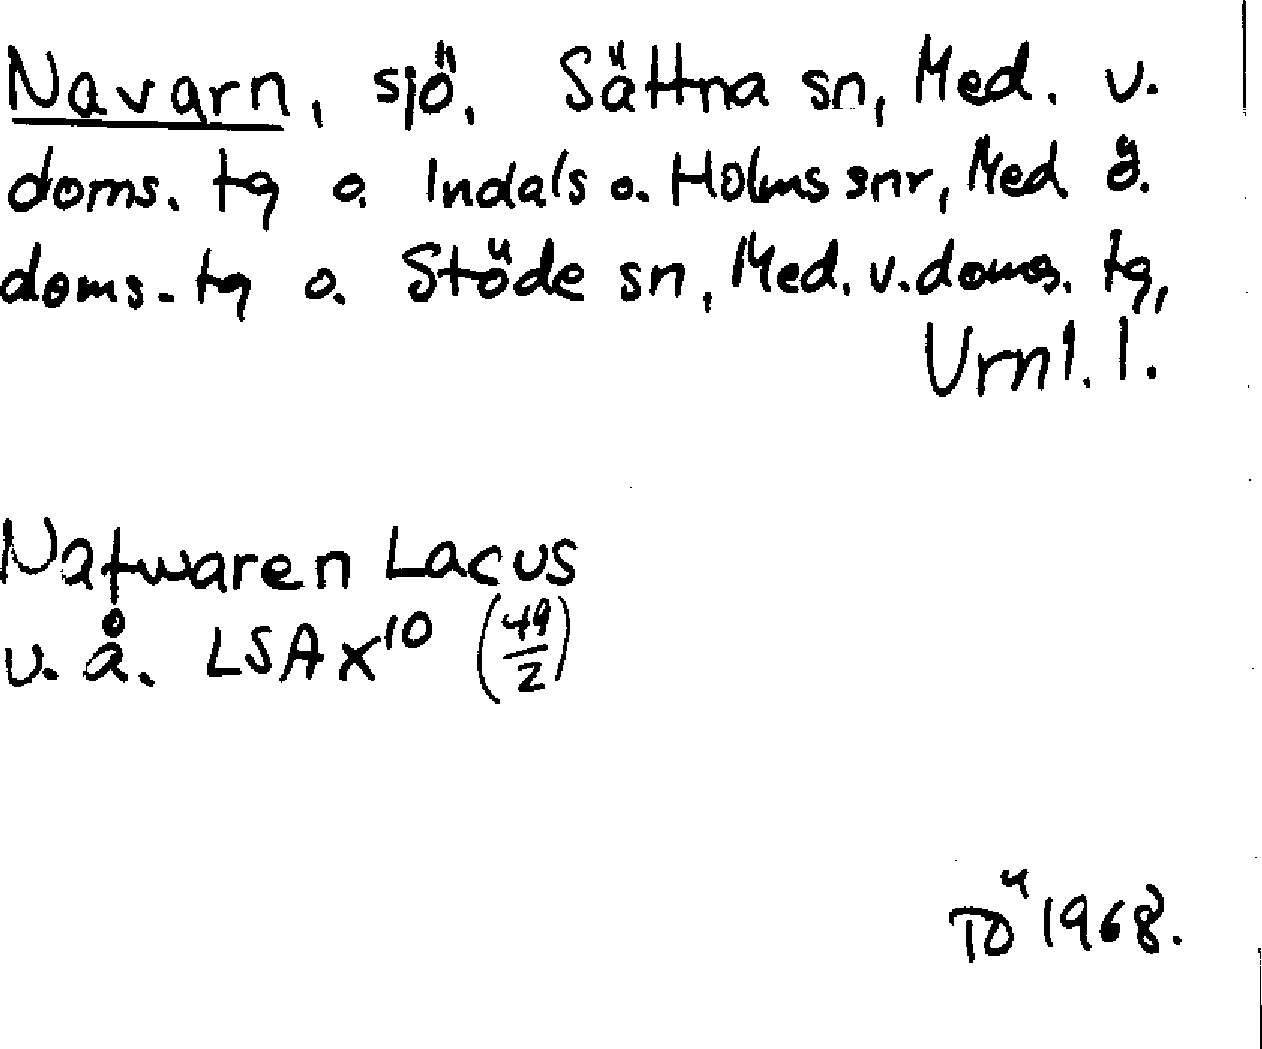 Navarn, sjö. Sättna sn, Med. v.
doms. tg o. Indals o. Holms snr, Med ö.
doms. tg o. Stöde sn, Med. v. doms. tg,
Urnl. l.
Nafwaren Lacus
u. å. LSA X10 (49/2)
TÖ 1968.